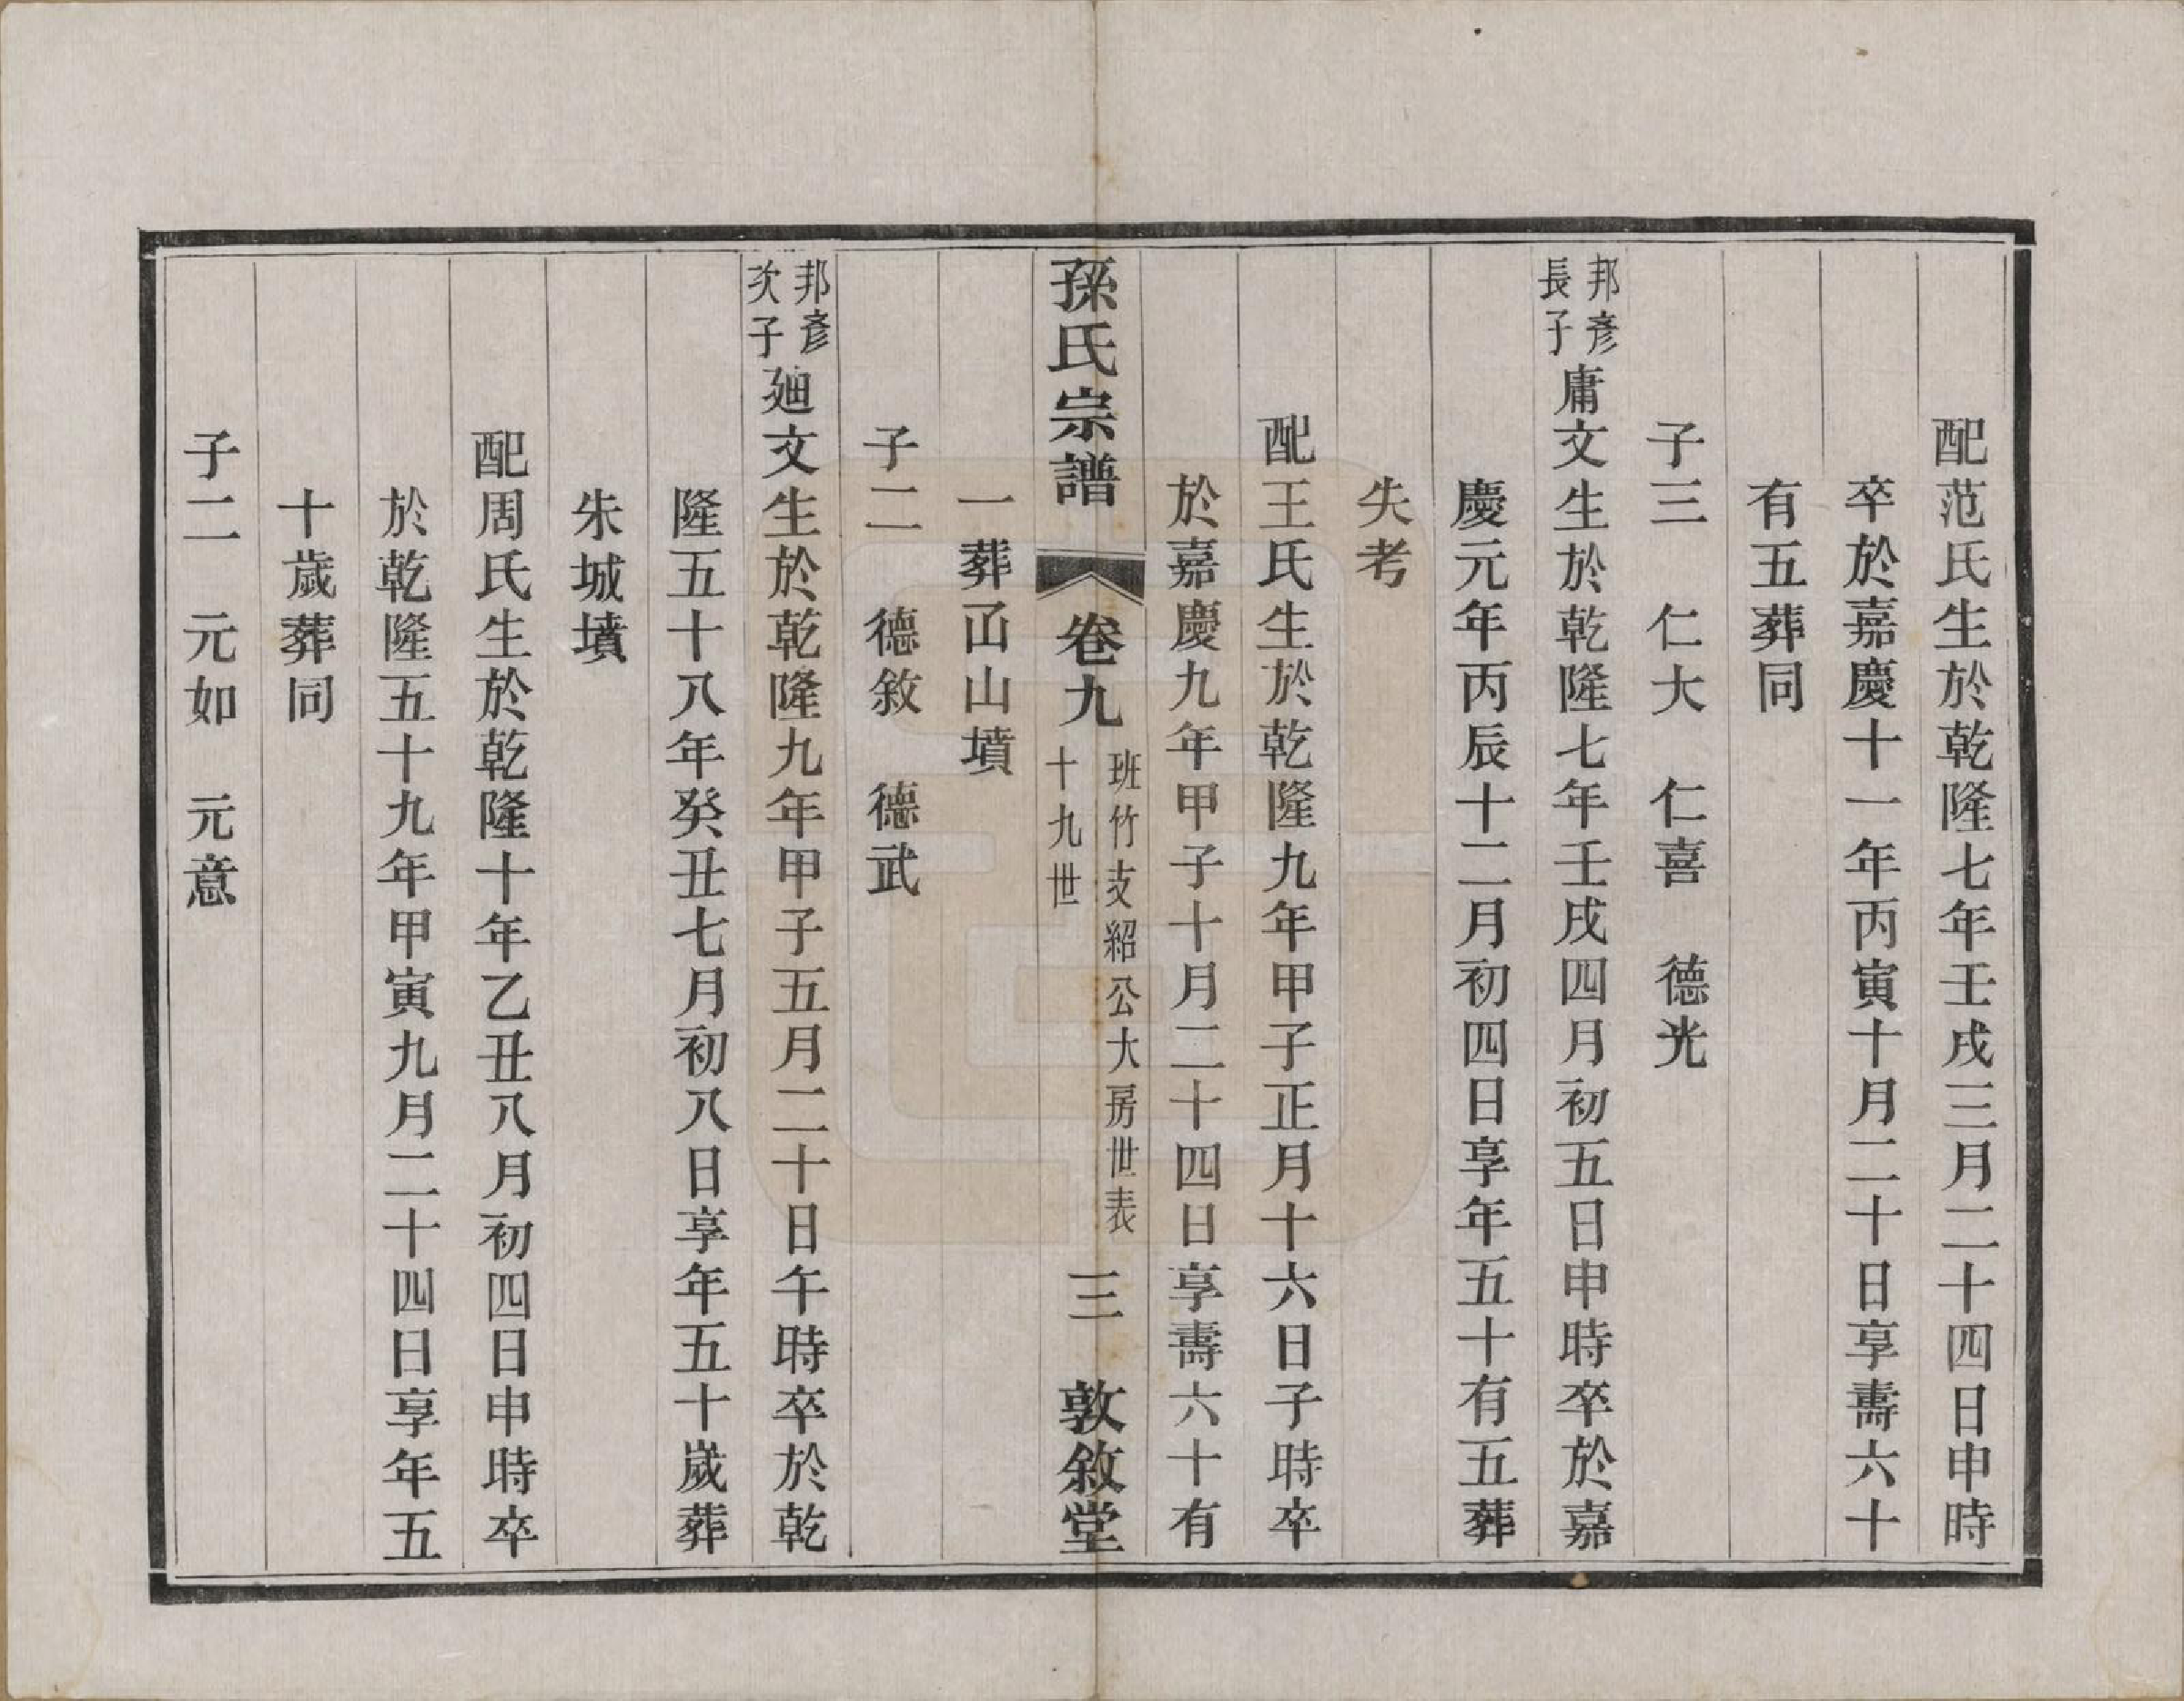 配范氏生於乾隆七年壬戌三月二十四日申時
卒於嘉慶十一年丙寅十月二十日享壽六十
有五葬同
子三　仁大　仁喜　德光
邦彥長子庸文生於乾隆七年壬戌四月初五日申時卒於嘉
慶元年丙辰十二月初四日享年五十有五葬
失考
配王氏生於乾隆九年甲子正月十六日子時卒
於嘉慶九年甲子十月二十四日享壽六十有
一葬凸山墳
子二　德敘　德武
孫氏宗譜　卷九　班竹支紹公大房世表　十九世　三　敦敘堂
邦彥次子廸文生於乾隆九年甲子五月二十日午時卒於乾
隆五十八年癸丑七月初八日享年五十嵗葬
朱城墳
配周氏生於乾隆十年乙丑八月初四日申時卒
於乾隆五十九年甲寅九月二十四日享年五
十歲葬同
子二　元如　元意